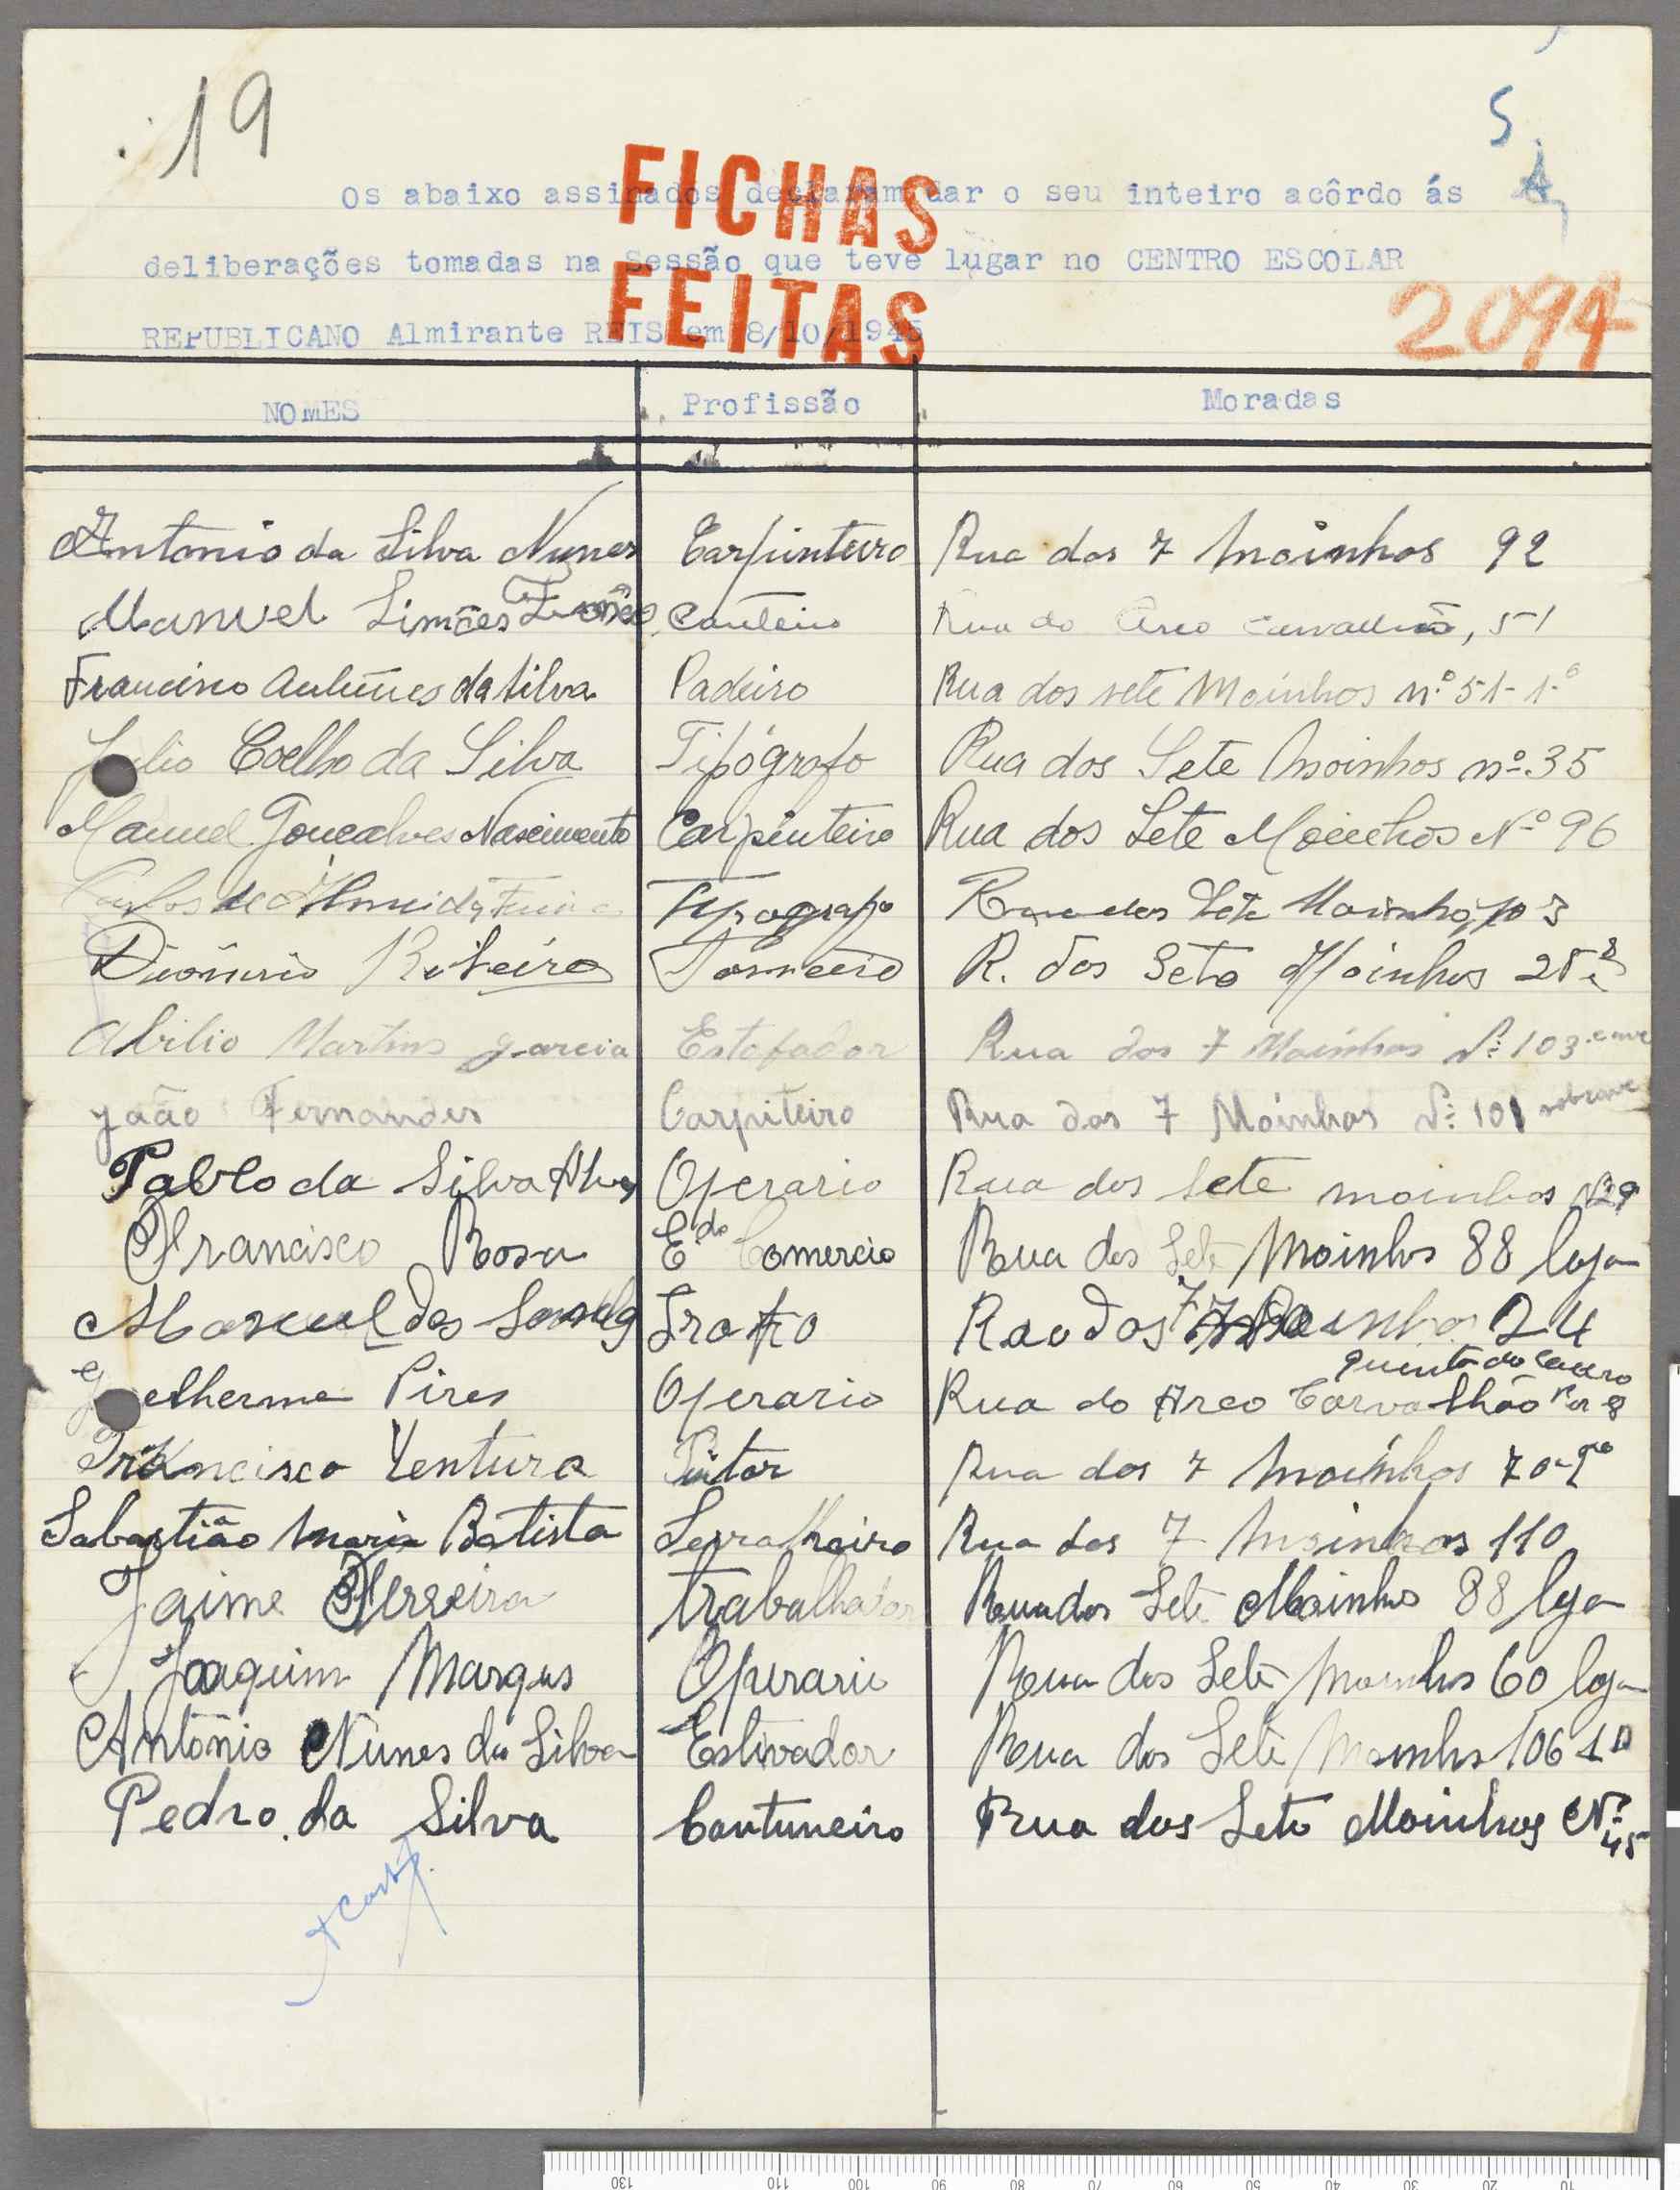 19
5
Os abaixo assinados declaram dar o seu inteiro acôrdo ás
deliberações tomadas na Sessão que teve lugar no CENTRO ESCOLAR
REPUBLICANO Almirante REIS em 8/10/1945
FICHAS
FEITAS
2094
NOMES Profissão Moradas
Antonio da Silva Nunes Carpinteiro Rua dos 7 Moinhos 92
Manuel Simões Canteiro Rua do Arco Carvalhão, 51
Francisco Antunes da Silva Padeiro Rua dos sete Moinhos nº 51-1º
Julio Coelho da Silva Tipógrafo Rua dos Sete Moinhos nº 35
Manuel Gonçalves Nascimento Carpinteiro Rua dos Sete Moinhos Nº 96
Carlos de Almeida Typografo Rua dos Sete Moinhos
Dionisio Ribeiro Torneeiro R. dos Sete Moinhos
Abilio Martins Garcia Estofador Rua dos 7 Moinhos Nº 103
João Fernandes Carpiteiro Rua dos 7 Moinhos Nº 101
Pablo da Silva Alves Operario Rua dos Sete moinhos
Francisco Rosa Edo Comercio Rua dos Sete Moinhos 88 loja
Manuel dos 7 Moinhos 24
elherme Pires Operario Rua do Arco Carvalhão quinta do
Francisco Ventura Pintor Rua dos 7 Moinhos 70
Sabastião Maria Batista Serralheiro Rua dos 7 Moinhos 110
Jaime Ferreira trabalhador Rua dos Sete Moinhos 88 loja
Joaquim Marques Operario Rua dos Sete Moinhos 60 loja
António Nunes da Silva Estivador Rua dos Sete Moinhos 106 1º
Pedro da Silva Cantuneiro Rua dos Sete Moinhos Nº 45
130 110 100 90 80 70 60 50 40 30 20 10